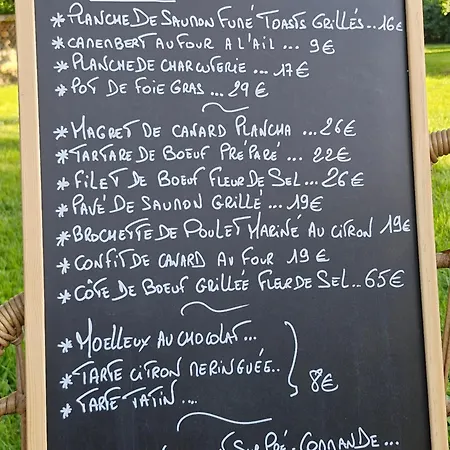 * PLANCHE DE SAUMON FUMÉ TOASTS GRILLÉS..16€
* CAMEMBERT AU FOUR A L'AIL ... 9€
* PLANCHE DE CHARCUTERIE ... 17€
* POT DE FOIE GRAS ... 29€
* MAGRET DE CANARD PLANCHA ... 26€
* TARTARE DE BOEUF PRÉPARÉ ... 22€
* FILET DE BOEUF FLEUR DE SEL... 26€
* PAVÉ DE SAUMON GRILLÉ ... 19€
* BROCHETTE DE POULET MARINÉ AU CITRON 19€
* CONFIT DE CANARD AU FOUR 19€
* CÔTE DE BOEUF GRILLÉE FLEUR DE SEL..65€
* MOELLEUX AU CHOCOLAT...
* TARTE CITRON MERINGUÉE..
8€
* TARTE TATIN ...
(SUR PRÉ-COMMANDE...